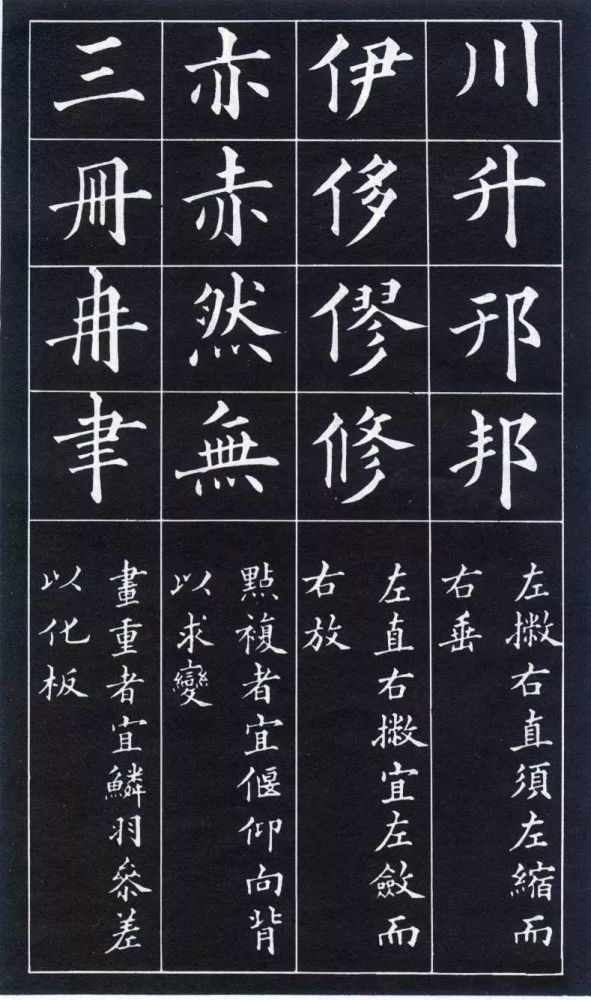 川
升
邦
左撇右直須左縮而
右垂
伊
侈
僇
修
左直右撇宜左斂而
右放
亦
赤
然
無
點複者宜偃仰向背
以求變
三
冊
冉
聿
畫重者宜鱗羽叅差
以化板